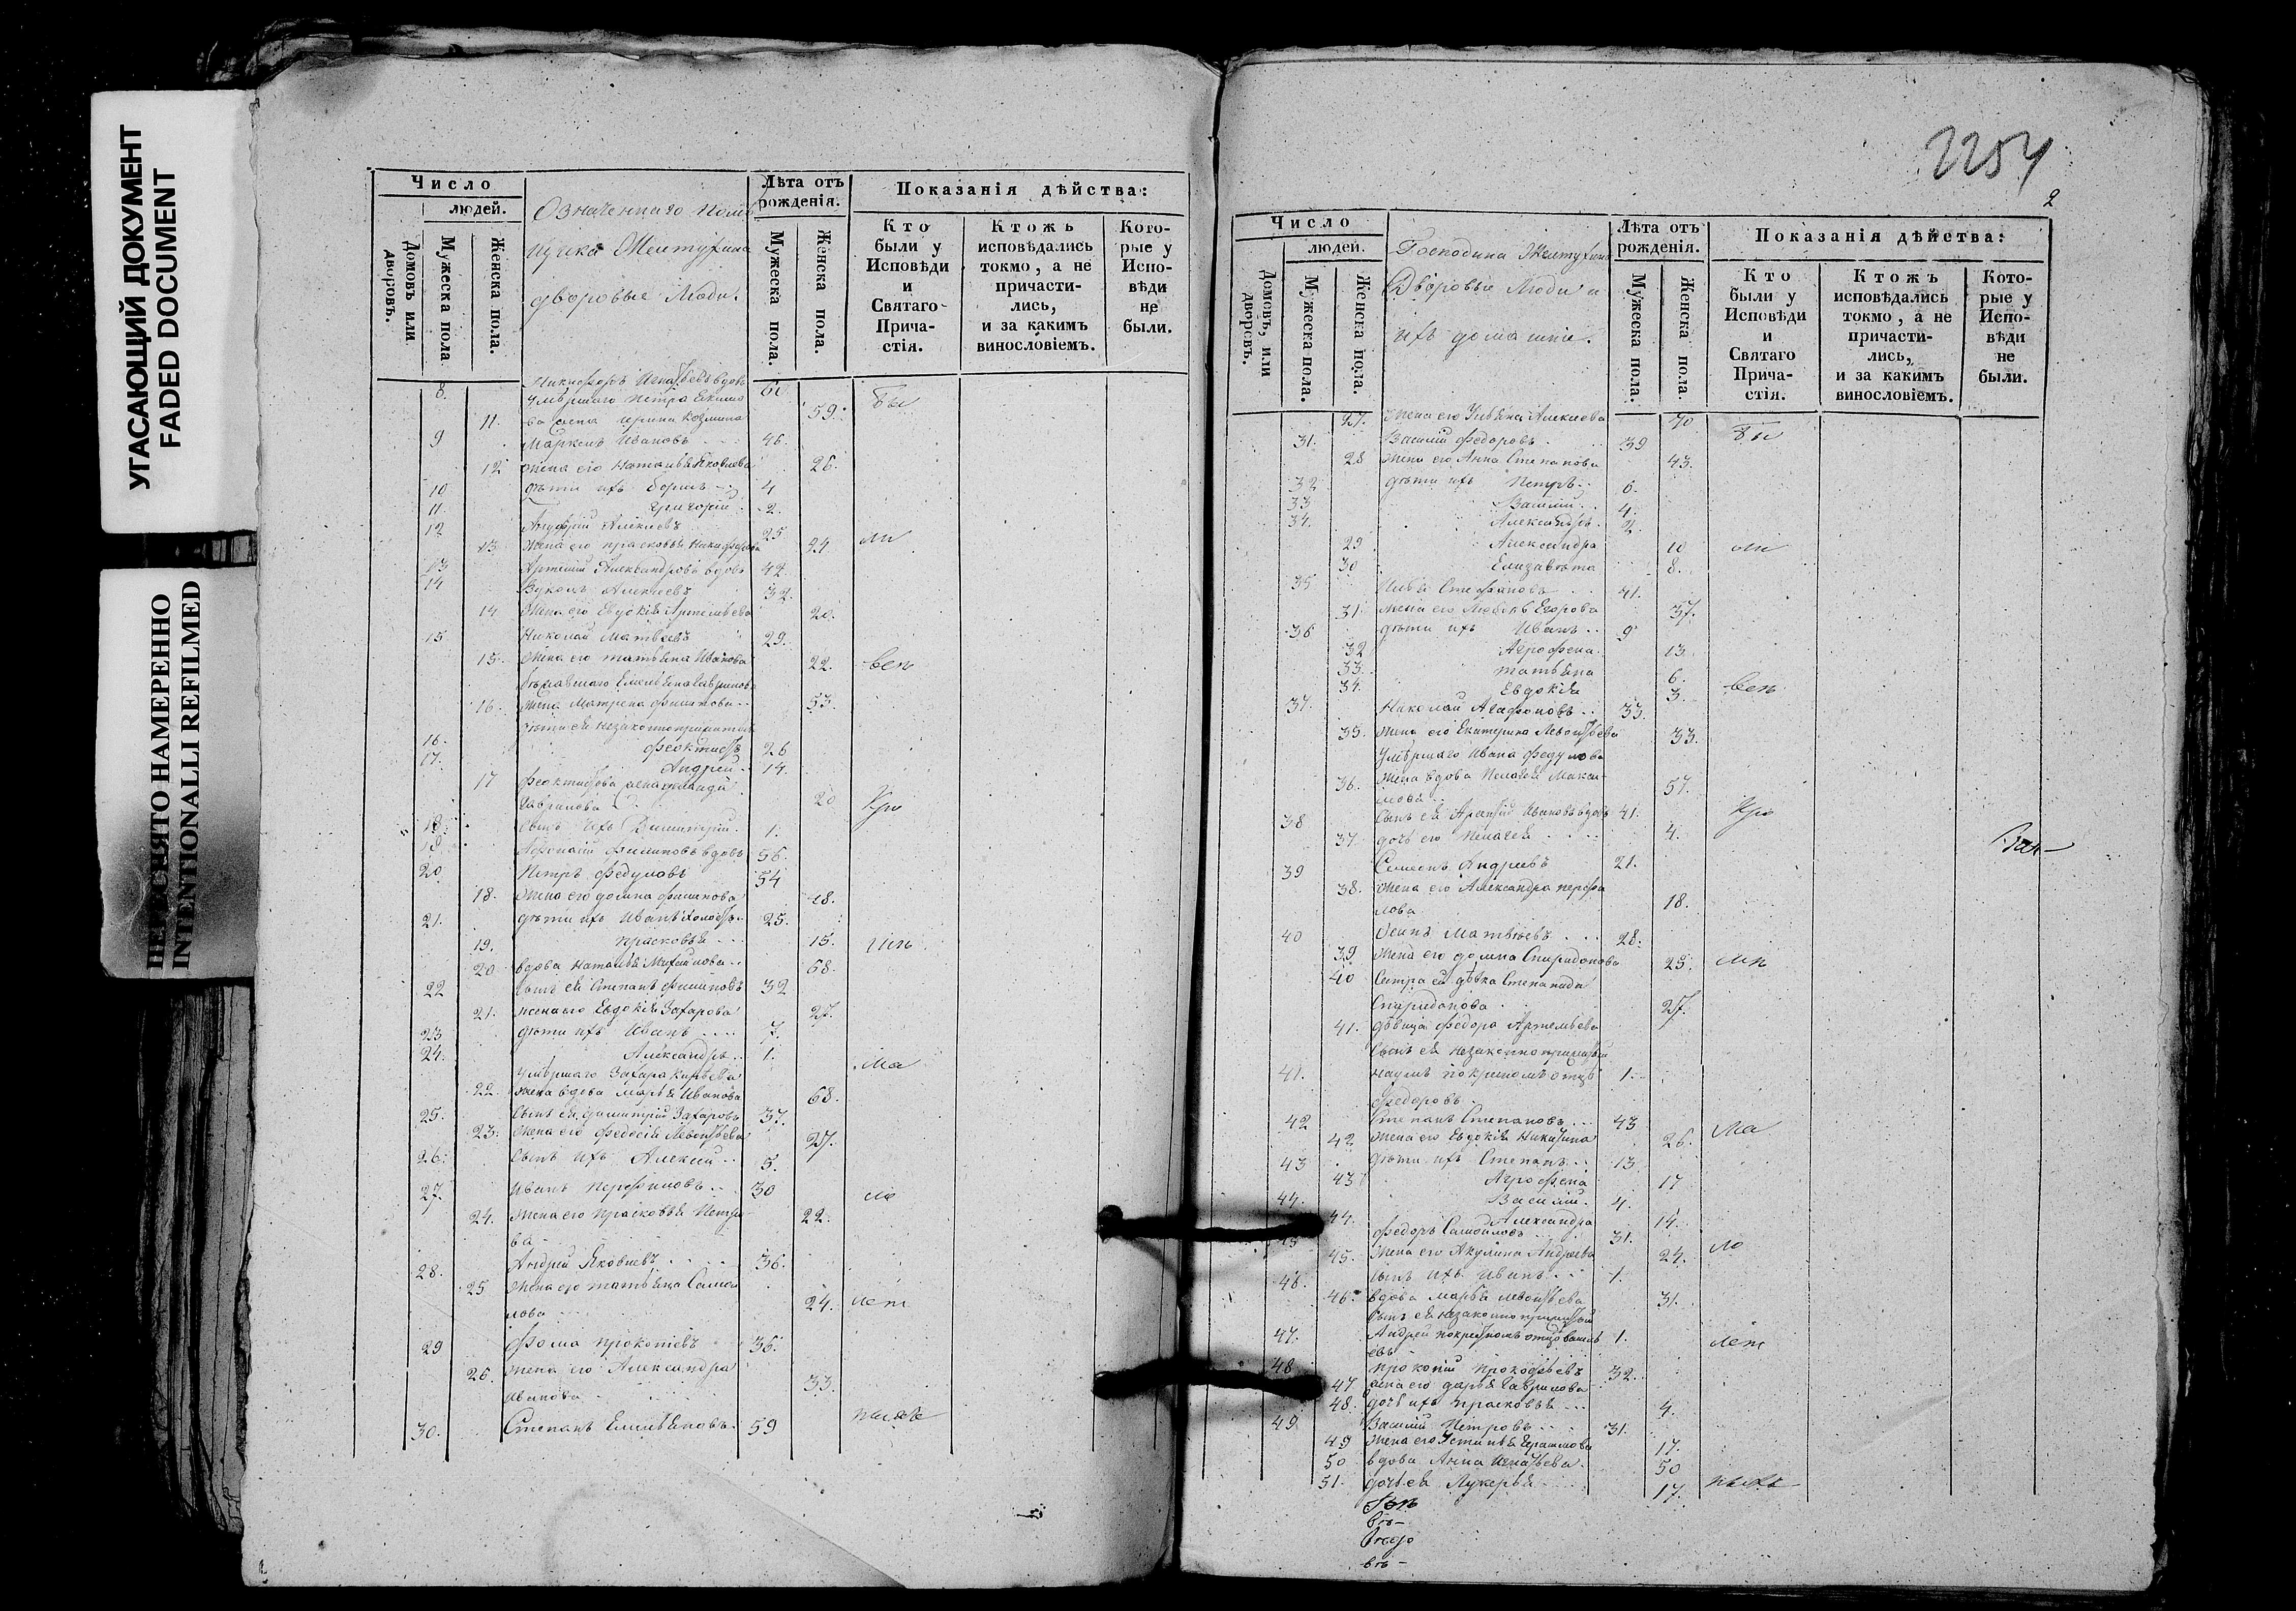 УГАСАЮЩИЙ ДОКУМЕНТ
FADED DOCUMENT
ПЕРЕСНЯТО НАМЕРЕННО
INTENTIONALLI REFILMED
Число
людей.
Домовъ или дворовъ.
Мужеска пола
Женска пола.
Означеннаго Помѣ
щика Желтухина
дворовые Люди.
Лѣта отъ рожденія.
Мужеска пола.
Женска пола.
Показанія дѣйства:
Кто были у Исповѣди и Святаго Причастія.
Ктожъ исповѣдались токмо, а не причастились, и за какимъ винословіемъ.
Которые у Исповѣди не были.
8. Никифоръ Игнатьевъ вдовъ 61
умершаго Петра Екимо
11. ва жена Ирина Козмина 59. Бы
9 Маркелъ Ивановъ 46.
12 жена его Наталья Яковлева 26.
10 дѣти ихъ Борисъ 4
11. Григорій 2.
12 Ануфрій Алексѣевъ 25
13 жена его Прасковья Никифорова 24 ли
13 Артемій Александровъ вдовъ 42
14 Вуколъ Алексѣевъ 32.
14 жена его Евдокія Артемьева 20.
15 Николай Матвѣевъ 29.
15. жена его Татьяна Иванова 22. всп
бѣжавшаго Емельяна Гаврилова
16. жена Матрена Филипова 53.
дѣти ея незаконноприжитые
16. Феоктистъ 26
17. Андрей 14.
17 Феоктистова жена
Гаврилова 20 Кро
18. сынъ ихъ Димитрій 1.
19. Афонасій Филиповъ вдовъ 56.
20 Петръ Федуловъ 54
18. жена его Домна Филипова 48.
21. дѣти ихъ Иванъ холостъ 25.
19. Прасковья 15.
20 вдова Наталья Михайлова 68.
22 сынъ ея Степанъ Филиповъ 32
21. жена его Евдокія Захарова 27.
23 дѣти ихъ Иванъ 7.
24. Александръ 1. Ма
умершаго Захара
22. жена вдова Марья Иванова 68.
25. сынъ ея Димитрій Захаровъ 37.
23. жена его Федосія Левонтьева 27.
26. сынъ ихъ Алексѣй 5.
27. Иванъ Перфиловъ 30 ло
24. жена его Прасковья Петро 22.
ва
28. Андрей Яковлевъ 36.
25 жена его Татьяна Самой
лова 24. лѣт
29 Фома Прокопіевъ 36.
26. жена его Александра
Иванова 33.
30. Степанъ Емельяновъ 59
2254
2
Число
людей.
Домовъ, или дворовъ.
Мужеска пола.
Женска пола.
Господина Желтухина
Дворовые Люди и
ихъ домашніе.
Лѣта отъ рожденія.
Мужеска пола.
Женска пола.
Показанія дѣйства:
Кто были у Исповѣди и Святаго Причастія.
Ктожъ исповѣдались токмо, а не причастились, и за какимъ винословіемъ.
Которые у Исповѣди не были.
27. жена его Ульяна Алексѣева 40 Бы
31. Василій Федоровъ 39
28 жена его Анна Степанова 43.
32 дѣти ихъ Петръ 6.
33 Василій 4.
34. Александръ 2.
29 Александра 10 ли
30 Елизавета 8.
35 Илья Стефановъ 41.
31. жена его Любовь Егорова 37.
36 дѣти ихъ Иванъ 9
32 Агрофена 13
33. Татьяна 6.
34. Евдокія 3. всп
37. Николай Агафоновъ 33.
35. жена его Екатерина Левонтьева 33.
умершаго Ивана Федулова
36. жена вдова Пелагея Макси
мова 57.
38 сынъ ея Ивановъ вдовъ 41. Кро
37. дочь его Пелагея 4.
39 Семенъ Андреевъ 21.
38. жена его Александра Перфи
лова 18.
40 Осипъ Матвѣевъ 28.
39 жена его Домна Спиридонова 25.
40 Сестра ея дѣвка Степанида
Спиридонова 27.
41. дѣвица Федора Артемьева
сынъ ея незаконноприжитый
41. Наумъ по крестномъ отцѣ 1.
Федоровъ
42 Степанъ Степановъ 43 Ма
42 жена его Евдокія Никитина 26.
43 дѣти ихъ Степанъ 13
43 Агрофена 17
44. Василій 4.
44. Александра 14.
45 Федоръ Самойловъ 31. ло
45. жена его Акулина Андреева 24.
46. сынъ ихъ Иванъ 1.
46. вдова Марья Левонтьева 31.
сынъ ея незаконноприжитый
47. Андрей по крестномъ отцѣ 1. лѣт
48 Прокопій Прокофьевъ 32.
47 жена его Дарья Гаврилова
48. дочь ихъ Прасковья 4.
49 Василій Петровъ 31.
49 жена его Устинья Герасимова 17.
50 вдова Анна Игнатьева 50
51. дочь ея Лукерья 17.